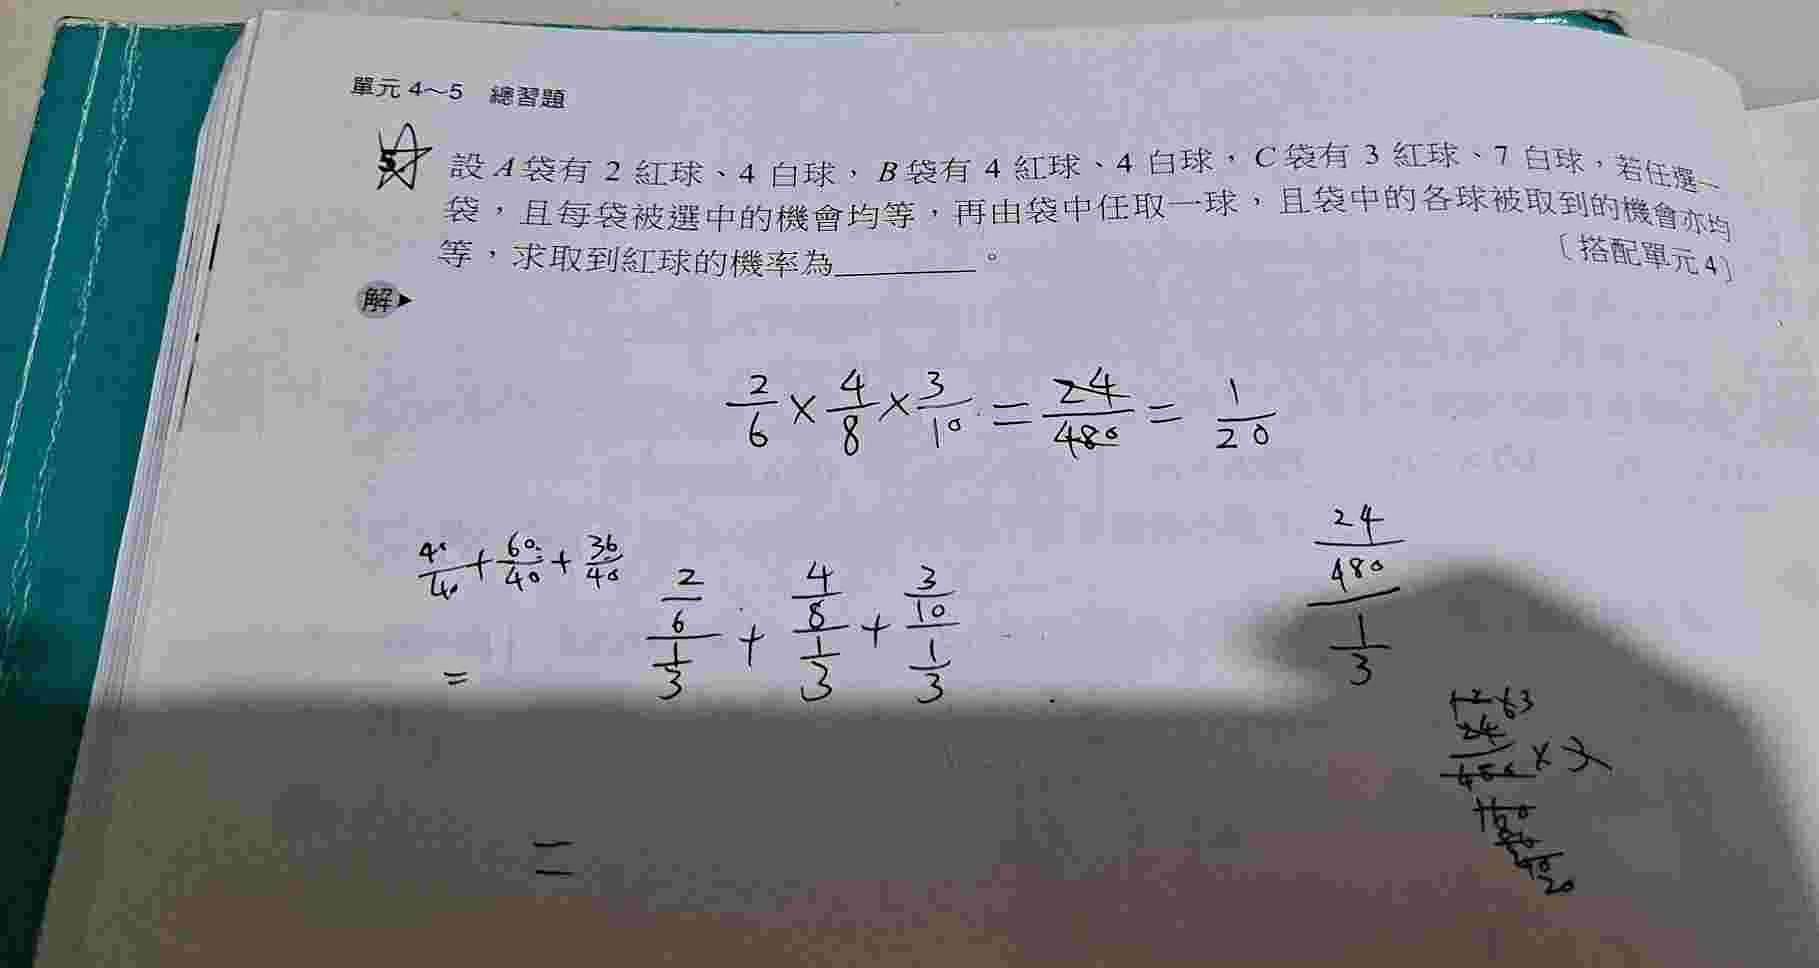 單元 4～5 總習題
5 設 A 袋有 2 紅球、4 白球，B 袋有 4 紅球、4 白球，C 袋有 3 紅球、7 白球，若任選一
袋，且每袋被選中的機會均等，再由袋中任取一球，且袋中的各球被取到的機會亦均
等，求取到紅球的機率為________。
〔搭配單元 4〕
解▶
2/6 × 4/8 × 3/10 = 24/480 = 1/20
60/40 + 36/40
(2/6)/(1/3) + (4/8)/(1/3) + (3/10)/(1/3)
=
(24/480)/(1/3)
24
× 3
20
=